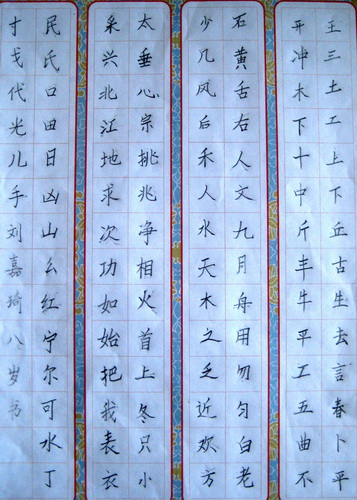 王三土工上下丘古生去言春卜平
开冲木下十中斤丰牛平工五曲不
石黄舌右人文九月舟用勿匀白老
少几风后禾人水天木之乏近欢方
太垂心宗挑兆净相火首上冬只小
采兴北江地求次功如始把我表衣
民氏口田日凶山幺红宁尔可水丁
寸戈代光儿手刘嘉琦八岁书